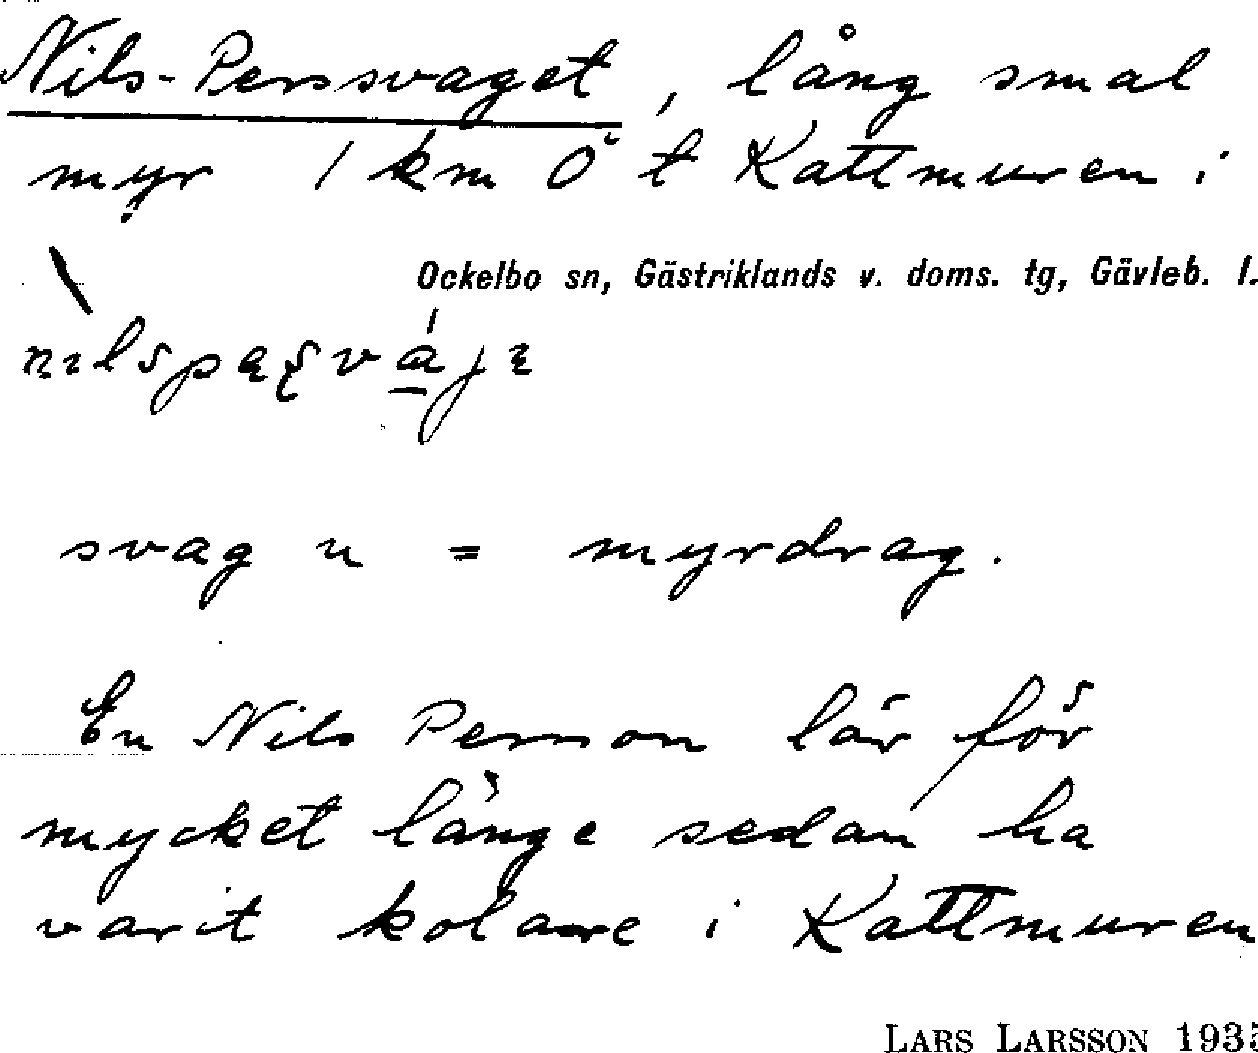 Nils-Perssvaget, lång smal
myr 1 km Ö t Kattmuren i
Ockelbo sn, Gästriklands v. doms. tg, Gävleb. l.
svag n = myrdrag.
En Nils Persson lär för
mycket länge sedan ha
varit kolare i Kattmuren
LARS LARSSON 1935